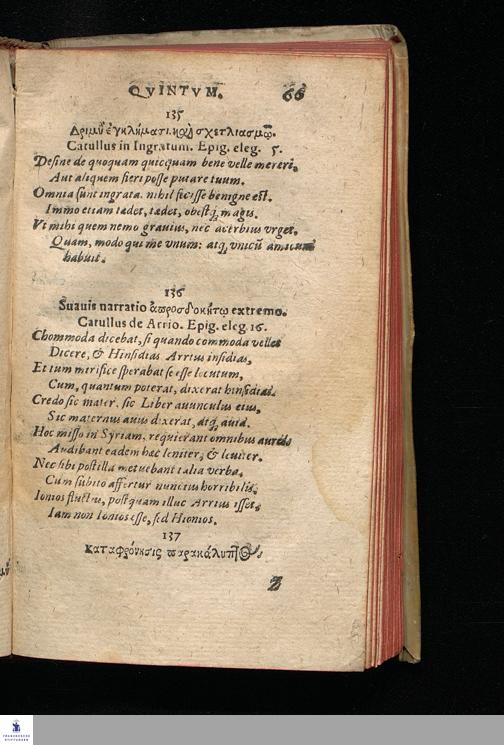 QVINTVM. 66
135
Δριμὺ ἐγκλήματι καὶ σχετλιασμῷ.
Catullus in Ingratum. Epig. eleg. 5.
Desine de quoquam quicquam bene velle mereri,
Aut aliquem fieri posse putare tuum.
Omnia sunt ingrata. nihil fecisse benigne est.
Immo etiam tædet, tædet, obestq; magis.
Vt mihi quem nemo grauius, nec acerbius vrget.
Quam, modo qui me vnum, atq; vnicũ amicum
habuit.
136
Suauis narratio ἀπροσδοκήτῳ extremo.
Catullus de Arrio. Epig. eleg. 16.
Chommoda dicebat, si quando commoda vellet
Dicere, & Hinsidias Arrius insidias,
Et tum mirifice sperabat se esse locutum,
Cum, quantum poterat, dixerat hinsidias.
Credo sic mater. sic Liber auunculus eius,
Sic maternus auus dixerat, atq; auia.
Hoc misso in Syriam, requierant omnibus aures,
Audibant eadem hæc leniter, & leuiter.
Nec sibi postilla metuebant talia verba,
Cum subito affertur nuncius horribilis,
Ionios fluctus, postquam illuc Arrius isset,
Iam non Ionios esse, sed Hionios.
137
Z
FRANCKESCHE
STIFTUNGEN